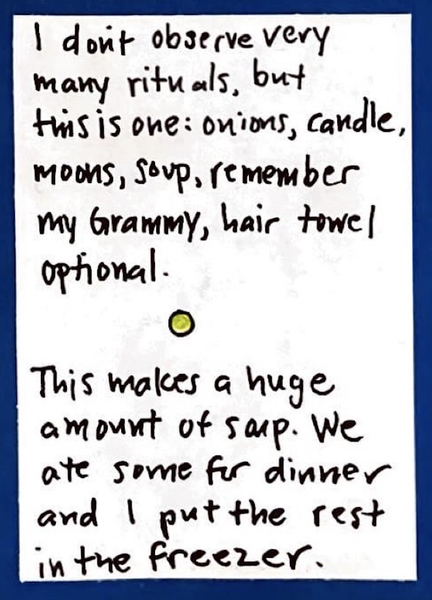 I don't observe very
many rituals, but
this is one: onions, candle,
moons, soup, remember
my Grammy, hair towel
optional.
This makes a huge
amount of soup. We
ate some for dinner
and I put the rest
in the freezer.